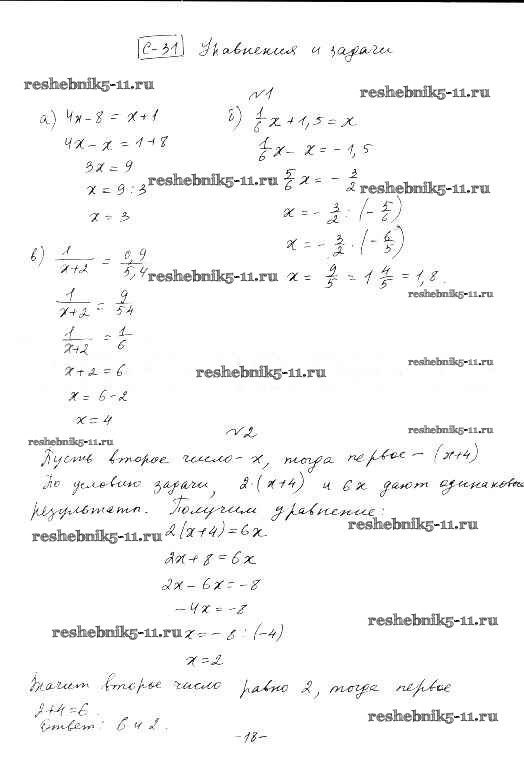 С-31 Уравнения и задачи
reshebnik5-11.ru
reshebnik5-11.ru
№1
а) 4x-8=x+1
4x-x=1+8
3x=9
x=9:3
x=3
reshebnik5-11.ru
б) 1/6 x+1,5=x
1/6 x-x=-1,5
5/6 x=-3/2
reshebnik5-11.ru
x=-3/2:(-5/6)
x=-3/2·(-6/5)
x=9/5=1 4/5=1,8.
reshebnik5-11.ru
в) 1/(x+2)=0,9/5,4
reshebnik5-11.ru
1/(x+2)=9/54
1/(x+2)=1/6
x+2=6
x=6-2
x=4
reshebnik5-11.ru
reshebnik5-11.ru
№2
reshebnik5-11.ru
reshebnik5-11.ru
Пусть второе число-x, тогда первое-(x+4)
По условию задачи, 2·(x+4) и 6x дают одинаковые
результаты. Получим уравнение:
reshebnik5-11.ru
reshebnik5-11.ru
2(x+4)=6x
2x+8=6x
2x-6x=-8
-4x=-8
reshebnik5-11.ru
reshebnik5-11.ru
x=-8:(-4)
x=2
Значит второе число равно 2, тогда первое
2+4=6.
reshebnik5-11.ru
Ответ: 6 и 2.
-18-